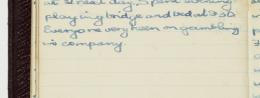 at St real day. Spent evening
playing bridge and bed at 9.30
Everyone very keen on gambling
in company.